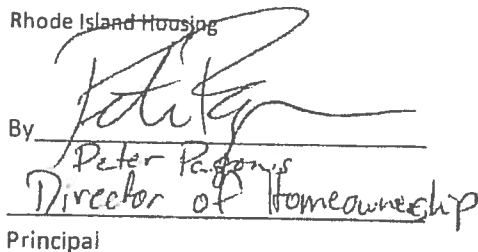 Rhode Island Housing
By
Peter Pagonis
Director of Homeownership
Principal